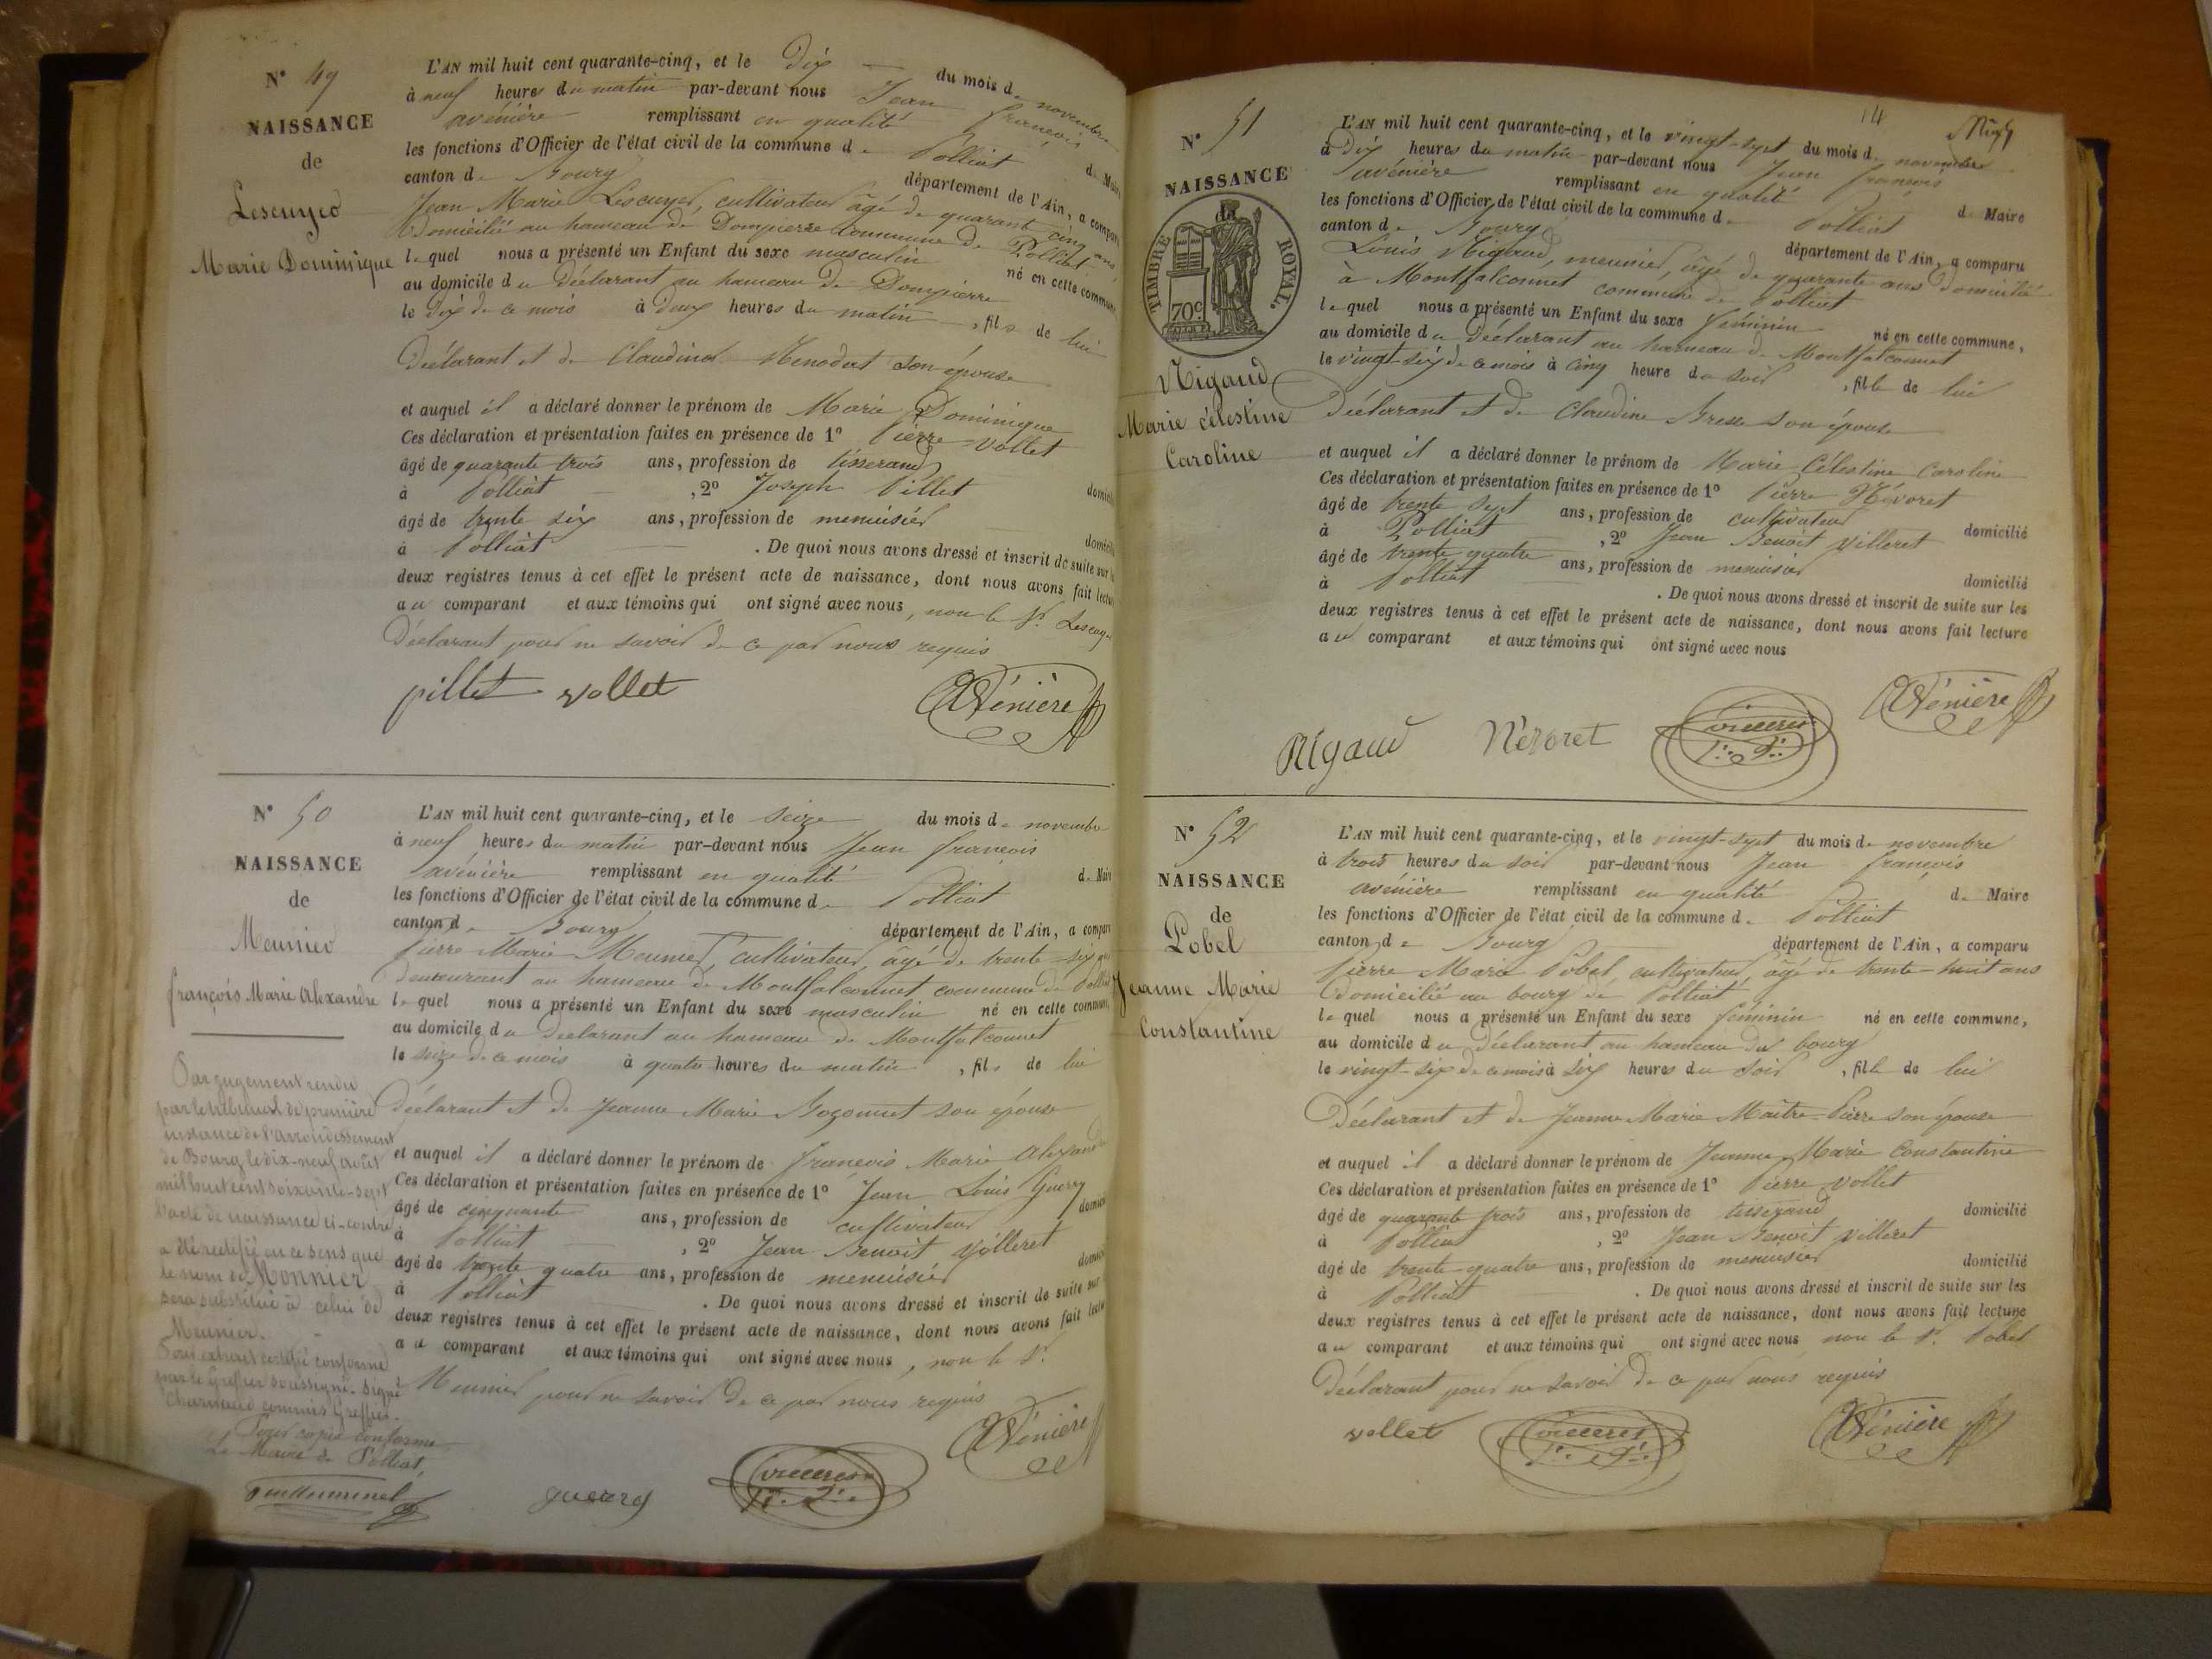 N° 49
NAISSANCE
de
Lescuyer
Marie Dominique
L'AN mil huit cent quarante-cinq, et le Dix du mois de novembre
à neuf heures du matin par-devant nous Jean françois
avénière remplissant en qualité de Maire
les fonctions d'Officier de l'état civil de la commune de Polliat
canton de Bourg département de l'Ain, a comparu
Jean Marie Lescuyer, cultivateur âgé de quarante cinq ans
Domicilié au hameau de Dompierre commune de Polliat
lequel nous a présenté un Enfant du sexe masculin né en cette commune
au domicile du Déclarant au hameau de Dompierre
le Dix de ce mois à Deux heures du matin, fils de lui
Déclarant et de Claudine son épouse
et auquel il a déclaré donner le prénom de Marie Dominique
Ces déclaration et présentation faites en présence de 1° Pierre Vollet
âgé de quarante trois ans, profession de tisserand
à Polliat, 2° Joseph Pillet
âgé de trente six ans, profession de menuisier
à Polliat. De quoi nous avons dressé et inscrit de suite sur les
deux registres tenus à cet effet le présent acte de naissance, dont nous avons fait lecture
au comparant et aux témoins qui ont signé avec nous, non le Sr. Lescuyer
Déclarant pour ne savoir de ce par nous requis
pillet vollet Avénière
N° 50
NAISSANCE
de
Meunier
françois Marie Alexandre
L'AN mil huit cent quarante-cinq, et le seize du mois de novembre
à neuf heures du matin par-devant nous Jean françois
avénière remplissant en qualité de Maire
les fonctions d'Officier de l'état civil de la commune de Polliat
canton de Bourg département de l'Ain, a comparu
Pierre Marie Meunier, cultivateur, âgé de trente-six ans
Demeurant au hameau de Montfalconnet commune de Polliat
lequel nous a présenté un Enfant du sexe masculin né en cette commune,
au domicile du Déclarant au hameau de Montfalconnet
le seize de ce mois à quatre heures du matin, fils de lui
Déclarant et de Jeanne Marie Gozonnet son épouse
et auquel il a déclaré donner le prénom de françois Marie Alexandre
Ces déclaration et présentation faites en présence de 1° Jean Louis Guerry
âgé de cinquante ans, profession de cultivateur
à Polliat, 2° Jean Benoit Villeret
âgé de trente quatre ans, profession de menuisier
à Polliat. De quoi nous avons dressé et inscrit de suite sur
deux registres tenus à cet effet le présent acte de naissance, dont nous avons fait lecture
au comparant et aux témoins qui ont signé avec nous, non le Sr.
Meunier pour ne savoir de ce par nous requis
Par jugement rendu
par le tribunal de première
instance de l'arrondissement
de Bourg le dix-neuf août
mil huit cent soixante-sept
l'acte de naissance ci-contre
a été rectifié en ce sens que
le nom de Monnier
sera substitué à celui de
Meunier.
Pour extrait certifié conforme
par le greffier soussigné. Signé
Charnaud commis Greffier.
Pour copie conforme
Le Maire de Polliat,
guerry villeret Avénière
14
N° 51
NAISSANCE
de
TIMBRE ROYAL.
70c
Rigaud
Marie célestine
Caroline
L'AN mil huit cent quarante-cinq, et le vingt-sept du mois de novembre
à Dix heures du matin par-devant nous Jean françois
avénière remplissant en qualité de Maire
les fonctions d'Officier de l'état civil de la commune de Polliat
canton de Bourg département de l'Ain, a comparu
Louis Rigaud, meunier, âgé de quarante ans Domicilié
à Montfalconnet commune de Polliat
lequel nous a présenté un Enfant du sexe féminin né en cette commune,
au domicile du Déclarant au hameau de Montfalconnet
le vingt-six de ce mois à cinq heure du soir, fille de lui
Déclarant et de Claudine Bresse son épouse
et auquel il a déclaré donner le prénom de Marie Célestine Caroline
Ces déclaration et présentation faites en présence de 1° Pierre Névoret
âgé de trente sept ans, profession de cultivateur domicilié
à Polliat, 2° Jean Benoit Villeret
âgé de trente quatre ans, profession de menuisier domicilié
à Polliat. De quoi nous avons dressé et inscrit de suite sur les
deux registres tenus à cet effet le présent acte de naissance, dont nous avons fait lecture
au comparant et aux témoins qui ont signé avec nous
Rigaud Névoret villeret Avénière
N° 52
NAISSANCE
de
Pobel
Jeanne Marie
Constantine
L'AN mil huit cent quarante-cinq, et le vingt-sept du mois de novembre
à trois heures du soir par-devant nous Jean françois
avénière remplissant en qualité de Maire
les fonctions d'Officier de l'état civil de la commune de Polliat
canton de Bourg département de l'Ain, a comparu
Pierre Marie Pobel, cultivateur, âgé de trente-huit ans
Domicilié au bourg de Polliat
lequel nous a présenté un Enfant du sexe féminin né en cette commune,
au domicile du Déclarant au hameau du bourg
le vingt-six de ce mois à six heures du soir, fille de lui
Déclarant et de Jeanne Marie Maitre-Pierre son épouse
et auquel il a déclaré donner le prénom de Jeanne Marie Constantine
Ces déclaration et présentation faites en présence de 1° Pierre Vollet
âgé de quarante trois ans, profession de tisserand domicilié
à Polliat, 2° Jean Benoit Villeret
âgé de trente-quatre ans, profession de menuisier domicilié
à Polliat. De quoi nous avons dressé et inscrit de suite sur les
deux registres tenus à cet effet le présent acte de naissance, dont nous avons fait lecture
au comparant et aux témoins qui ont signé avec nous non le Sr. Pobel
Déclarant pour ne savoir de ce par nous requis
vollet villeret Avénière